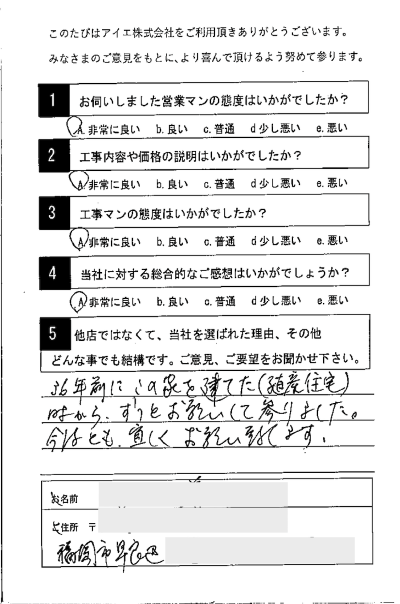 このたびはアイエ株式会社をご利用頂きありがとうございます。
みなさまのご意見をもとに、より喜んで頂けるよう努めて参ります。
1 お伺いしました営業マンの態度はいかがでしたか？
A.非常に良い b.良い c.普通 d少し悪い e.悪い
2 工事内容や価格の説明はいかがでしたか？
A.非常に良い b.良い c.普通 d少し悪い e.悪い
3 工事マンの態度はいかがでしたか？
A.非常に良い b.良い c.普通 d少し悪い e.悪い
4 当社に対する総合的なご感想はいかがでしょうか？
A.非常に良い b.良い c.普通 d少し悪い e.悪い
5 他店ではなくて、当社を選ばれた理由、その他
どんな事でも結構です。ご意見、ご要望をお聞かせ下さい。
36年前にこの家を建てた(殖産住宅)
時から、ずっとお願いして参りました。
今後とも、宜しくお願い致します。
お名前
ご住所 〒
福岡市早良区